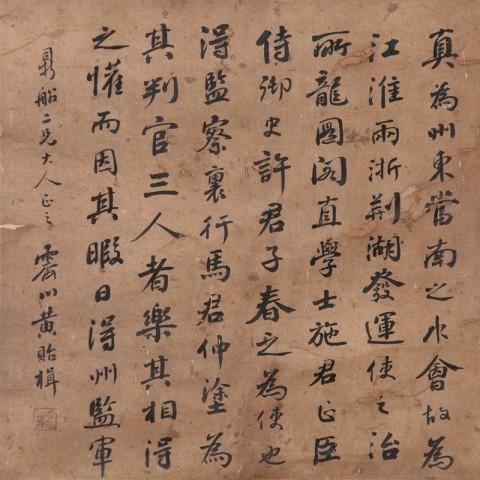 真為州東當南之水會故為
江淮兩浙荊湖發運使之治
所龍圖閣直學士施君正臣
侍御史許君子春之為使也
得監察裏行馬君仲塗為
其判官三人者樂其相得
之懽而因其暇日得州監軍
鼎船二兄大人正之
霱川黃貽楫